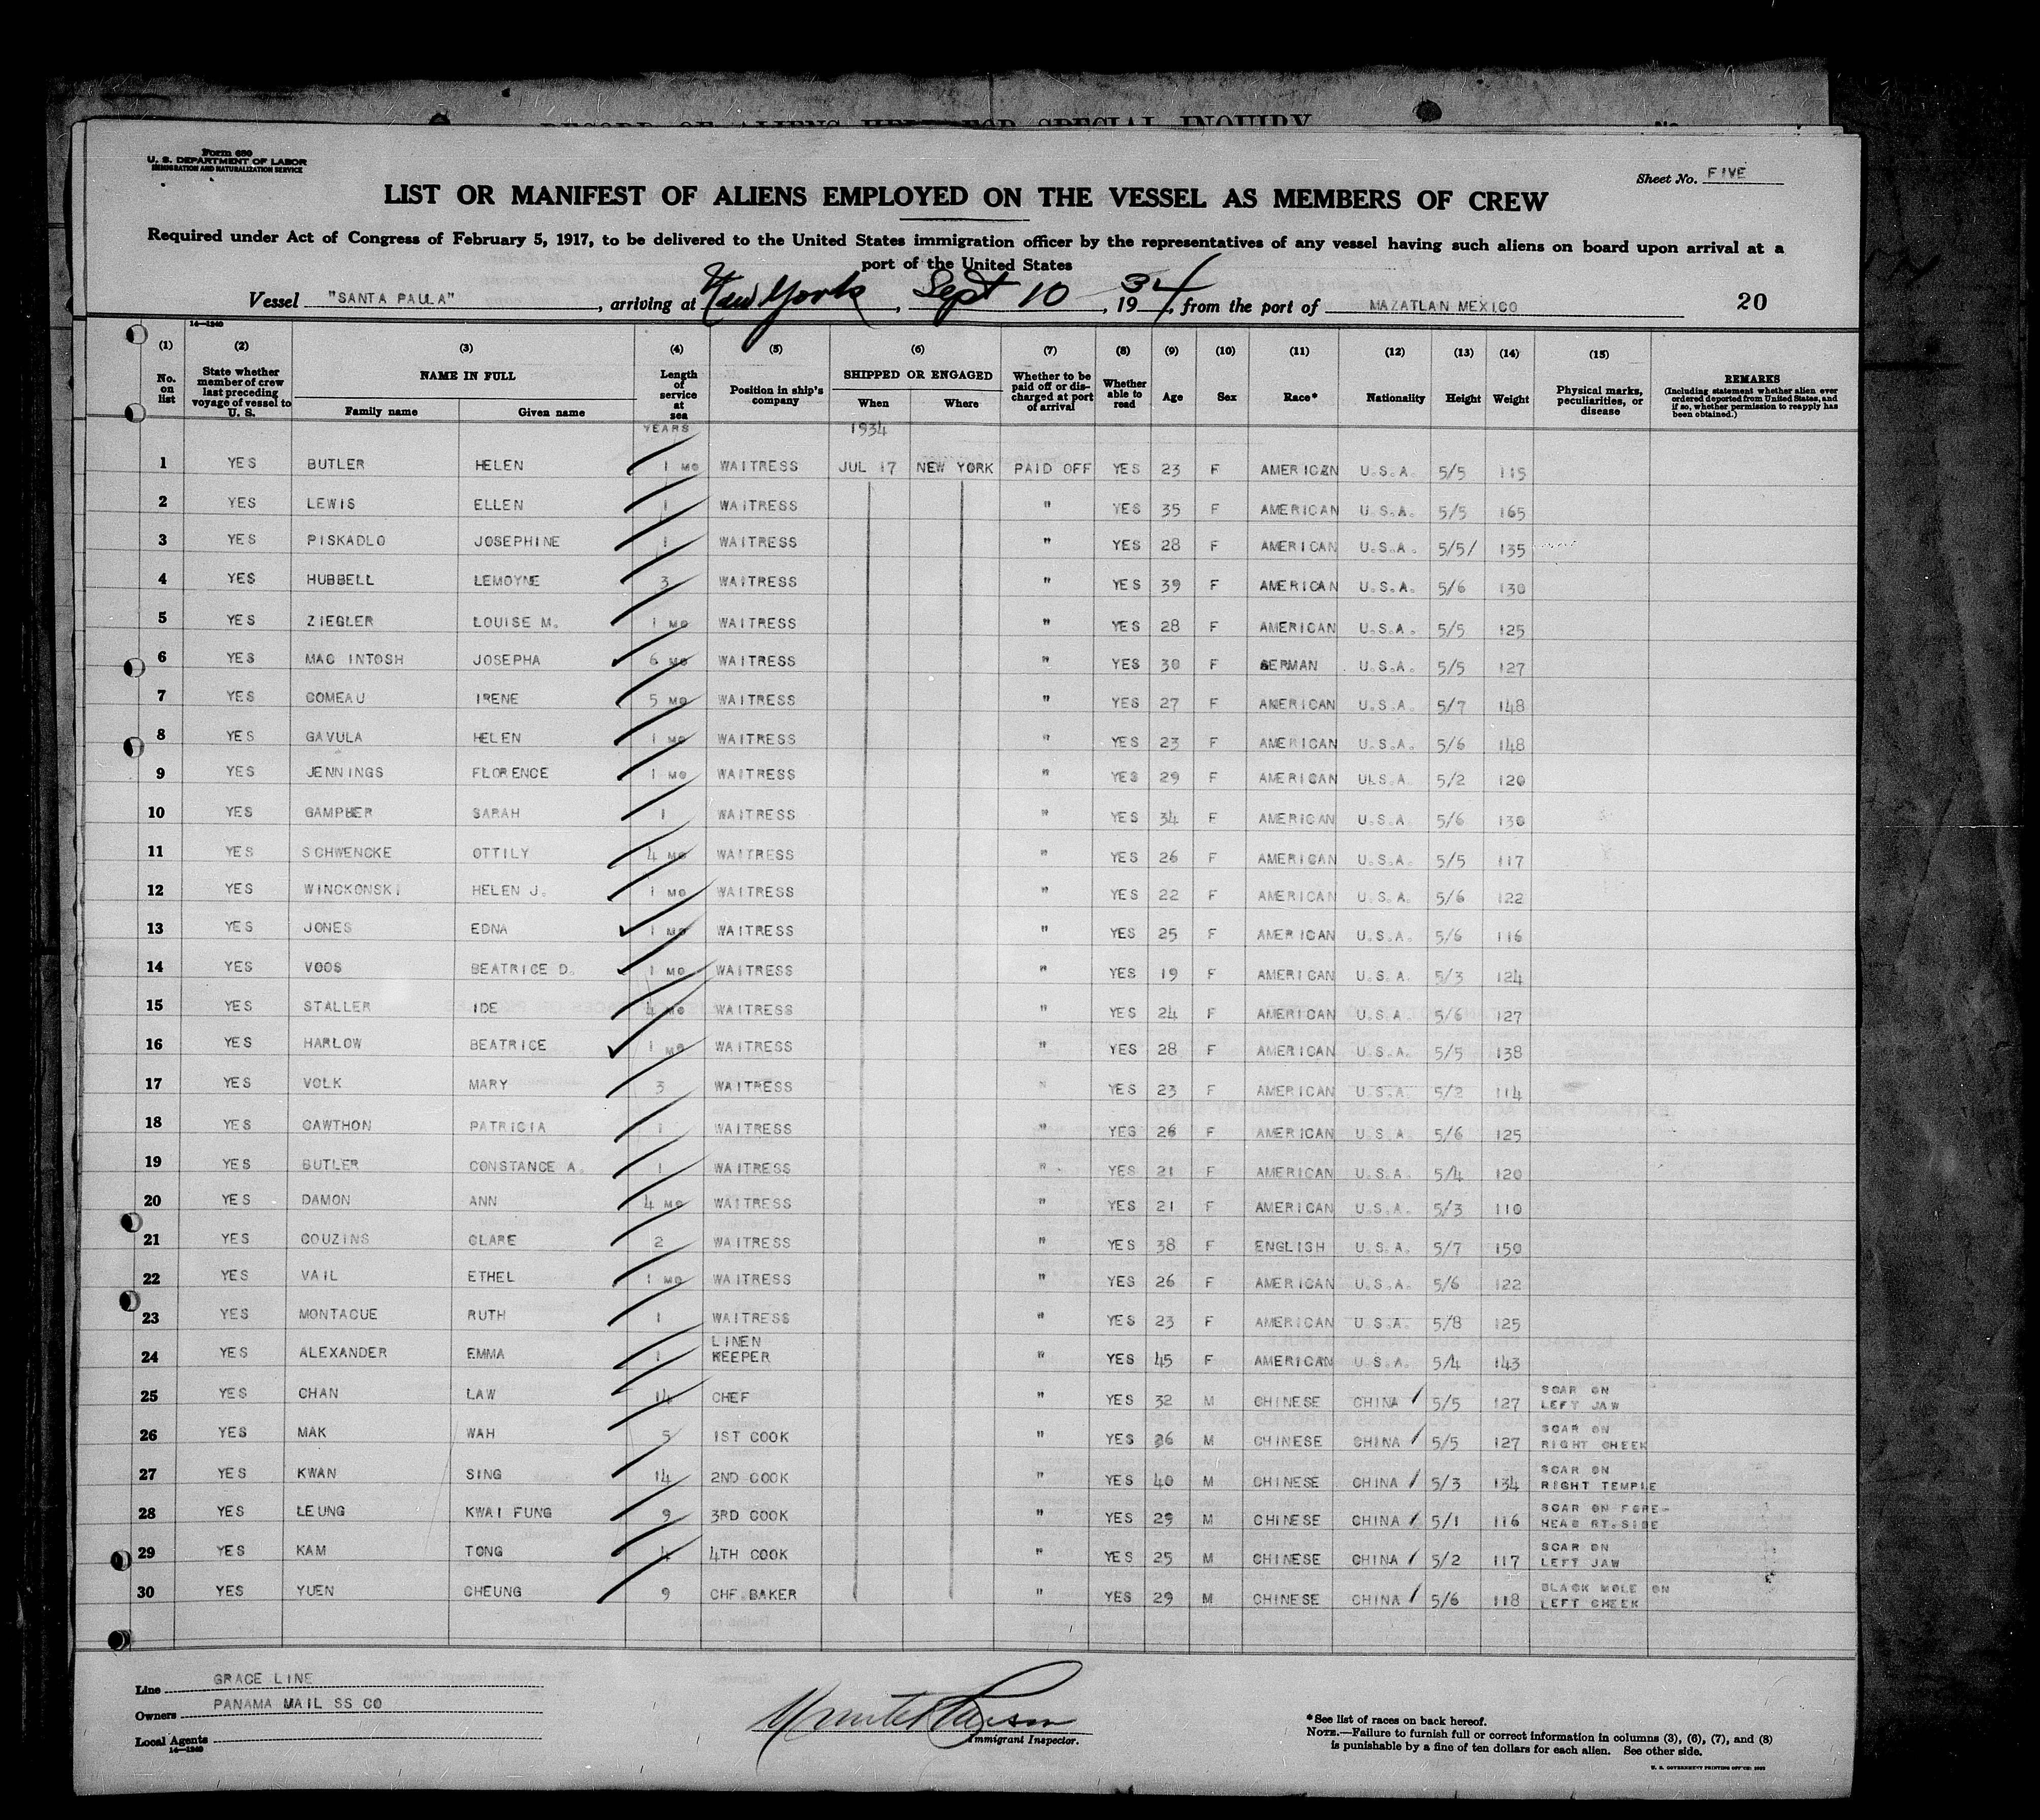 RECORD OF ALIENS HELD FOR SPECIAL INQUIRY
Form 680
U. S. DEPARTMENT OF LABOR
IMMIGRATION AND NATURALIZATION SERVICE
Sheet No. FIVE
LIST OR MANIFEST OF ALIENS EMPLOYED ON THE VESSEL AS MEMBERS OF CREW
Required under Act of Congress of February 5, 1917, to be delivered to the United States immigration officer by the representatives of any vessel having such aliens on board upon arrival at a
port of the United States
Vessel "SANTA PAULA", arriving at New York, Sept 10, 1934, from the port of MAZATLAN MEXICO 20
14—1240
(1) (2) (3) (4) (5) (6) (7) (8) (9) (10) (11) (12) (13) (14) (15)
No. on list
State whether member of crew last preceding voyage of vessel to U. S.
NAME IN FULL
Family name Given name
Length of service at sea
Position in ship's company
SHIPPED OR ENGAGED
When Where
Whether to be paid off or discharged at port of arrival
Whether able to read
Age Sex Race* Nationality Height Weight
Physical marks, peculiarities, or disease
REMARKS
(Including statement whether alien ever ordered deported from United States, and if so, whether permission to reapply has been obtained.)
YEARS 1934
1 YES BUTLER HELEN 1 MO WAITRESS JUL 17 NEW YORK PAID OFF YES 23 F AMERICAN U.S.A. 5/5 115
2 YES LEWIS ELLEN 1 WAITRESS " YES 35 F AMERICAN U.S.A. 5/5 165
3 YES PISKADLO JOSEPHINE 1 WAITRESS " YES 28 F AMERICAN U.S.A. 5/5/ 135
4 YES HUBBELL LEMOYNE 3 WAITRESS " YES 39 F AMERICAN U.S.A. 5/6 130
5 YES ZIEGLER LOUISE M. 1 MO WAITRESS " YES 28 F AMERICAN U.S.A. 5/5 125
6 YES MAC INTOSH JOSEPHA 6 MO WAITRESS " YES 30 F GERMAN U.S.A. 5/5 127
7 YES COMEAU IRENE 5 MO WAITRESS " YES 27 F AMERICAN U.S.A. 5/7 148
8 YES GAVULA HELEN 1 MO WAITRESS " YES 23 F AMERICAN U.S.A. 5/6 148
9 YES JENNINGS FLORENCE 1 MO WAITRESS " YES 29 F AMERICAN ULS.A. 5/2 120
10 YES GAMPHER SARAH 1 WAITRESS " YES 34 F AMERICAN U.S.A. 5/6 130
11 YES SCHWENCKE OTTILY 4 MO WAITRESS " YES 26 F AMERICAN U.S.A. 5/5 117
12 YES WINCKONSKI HELEN J. 1 MO WAITRESS " YES 22 F AMERICAN U.S.A. 5/6 122
13 YES JONES EDNA 1 MO WAITRESS " YES 25 F AMERICAN U.S.A. 5/6 116
14 YES VOOS BEATRICE D. 1 MO WAITRESS " YES 19 F AMERICAN U.S.A. 5/3 124
15 YES STALLER IDE 4 MO WAITRESS " YES 24 F AMERICAN U.S.A. 5/6 127
16 YES HARLOW BEATRICE 1 MO WAITRESS " YES 28 F AMERICAN U.S.A. 5/5 138
17 YES VOLK MARY 3 WAITRESS " YES 23 F AMERICAN U.S.A. 5/2 114
18 YES CAWTHON PATRICIA 1 WAITRESS " YES 26 F AMERICAN U.S.A. 5/6 125
19 YES BUTLER CONSTANCE A. 1 WAITRESS " YES 21 F AMERICAN U.S.A. 5/4 120
20 YES DAMON ANN 4 MO WAITRESS " YES 21 F AMERICAN U.S.A. 5/3 110
21 YES COUZINS CLARE 2 WAITRESS " YES 38 F ENGLISH U.S.A. 5/7 150
22 YES VAIL ETHEL 1 MO WAITRESS " YES 26 F AMERICAN U.S.A. 5/6 122
23 YES MONTAGUE RUTH 1 WAITRESS " YES 23 F AMERICAN U.S.A. 5/8 125
24 YES ALEXANDER EMMA 1 LINEN KEEPER " YES 45 F AMERICAN U.S.A. 5/4 143
25 YES CHAN LAW 14 CHEF " YES 32 M CHINESE CHINA 5/5 127 SCAR ON LEFT JAW
26 YES MAK WAH 5 1ST COOK " YES 36 M CHINESE CHINA 5/5 127 SCAR ON RIGHT CHEEK
27 YES KWAN SING 14 2ND COOK " YES 40 M CHINESE CHINA 5/3 134 SCAR ON RIGHT TEMPLE
28 YES LEUNG KWAI FUNG 9 3RD COOK " YES 29 M CHINESE CHINA 5/1 116 SCAR ON FORE-HEAD RT.SIDE
29 YES KAM TONG 4 4TH COOK " YES 25 M CHINESE CHINA 5/2 117 SCAR ON LEFT JAW
30 YES YUEN CHEUNG 9 CHF.BAKER " YES 29 M CHINESE CHINA 5/6 118 BLACK MOLE ON LEFT CHEEK
Line GRACE LINE
Owners PANAMA MAIL SS CO
Local Agents
14—1240
Immigrant Inspector.
*See list of races on back hereof.
NOTE.—Failure to furnish full or correct information in columns (3), (6), (7), and (8)
is punishable by a fine of ten dollars for each alien. See other side.
U. S. GOVERNMENT PRINTING OFFICE: